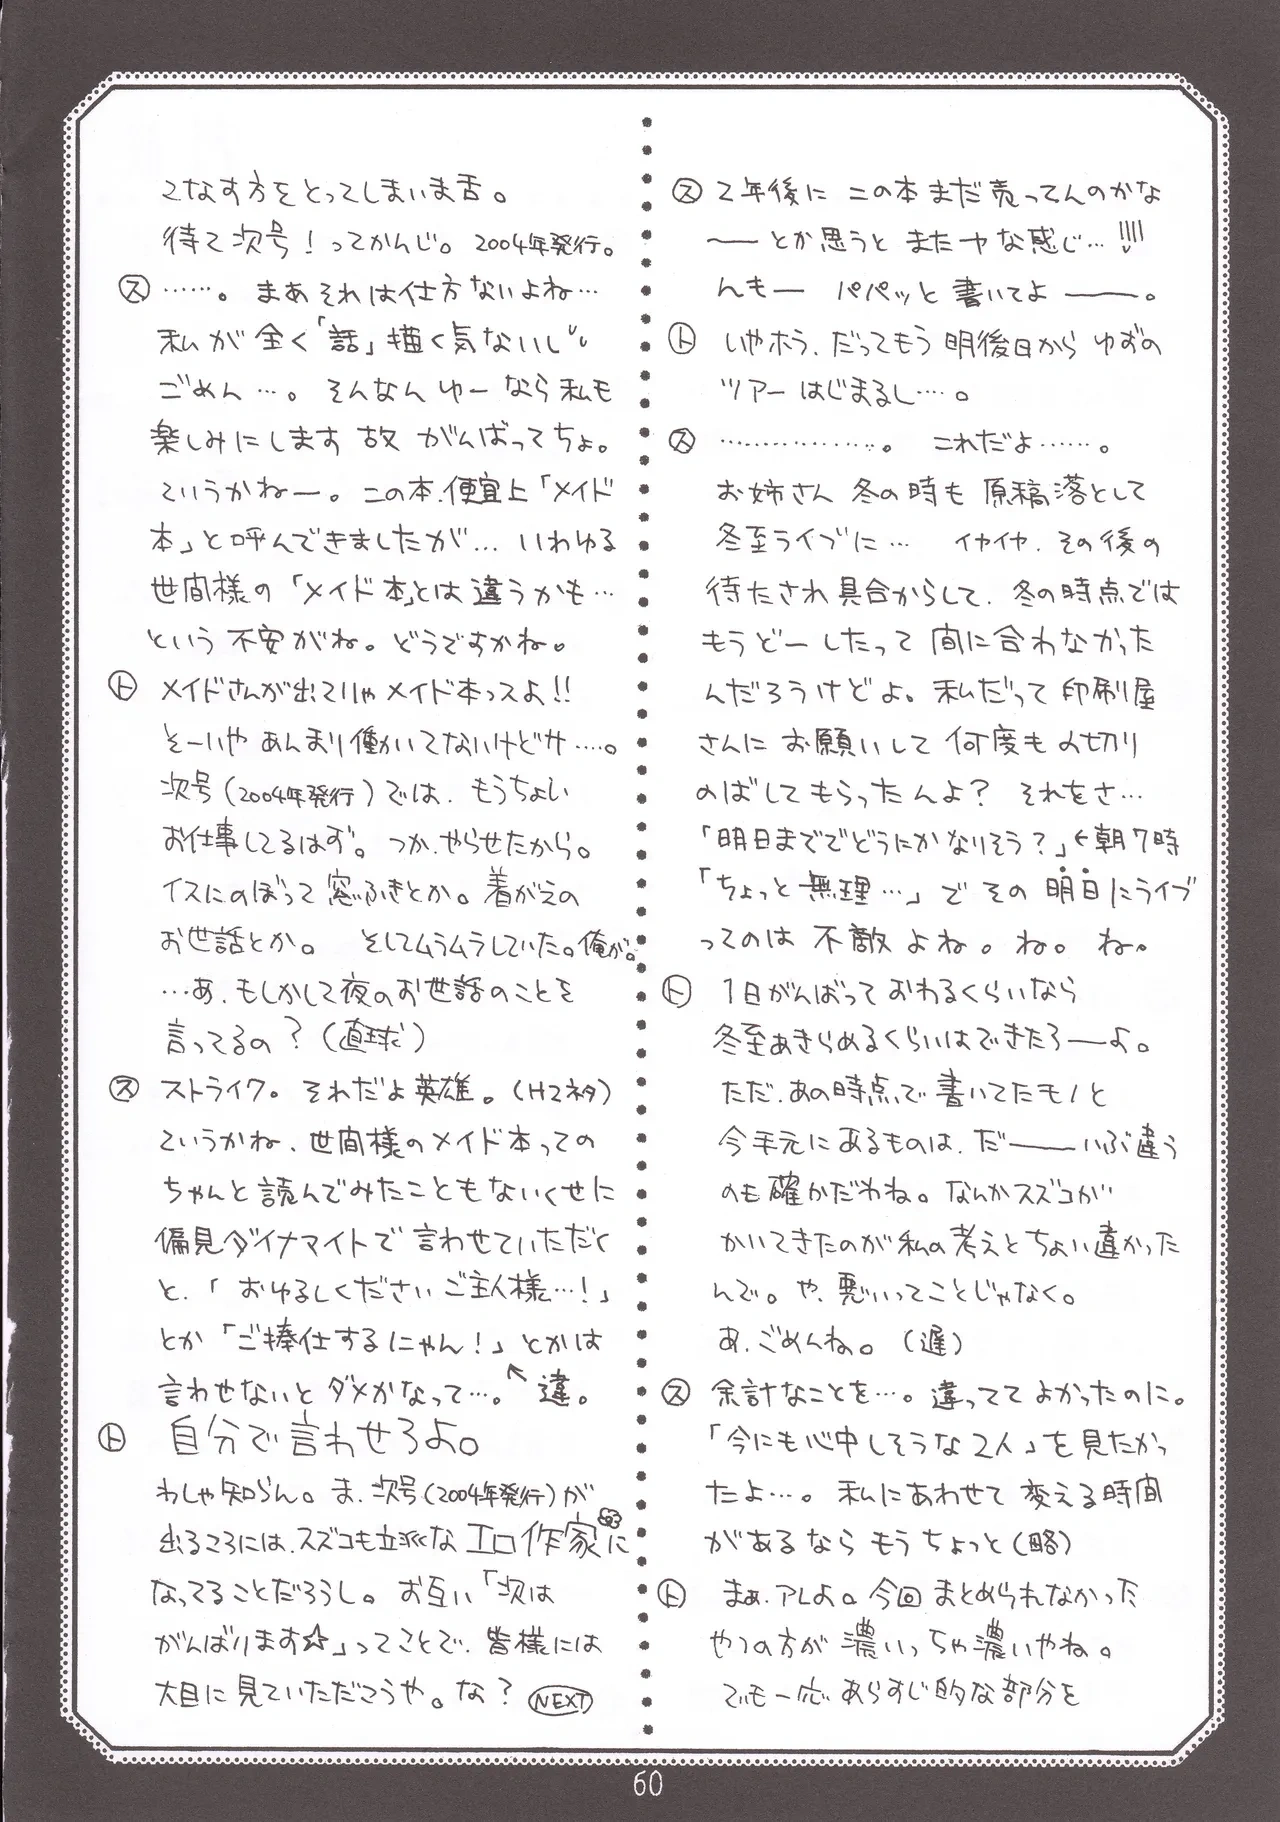 ス 2年後に この本まだ売ってんのかな
——とか思うと またヤな感じ…!!!!
んもー パパッと書いてよ———。
ト いやホラ、だってもう明後日から ゆずの
ツアーはじまるし…。
ス ………………。 これだよ……。
お姉さん 冬の時も 原稿落として
冬至ライブに… イヤイヤ、その後の
待たされ具合からして、冬の時点では
もうどーしたって 間に合わなかった
んだろうけどよ。私だって 印刷屋
さんに お願いして 何度も〆切り
のばしてもらったんよ? それをさ…
「明日まででどうにかなりそう?」←朝7時
「ちょっと無理…」で その 明日にライブ
ってのは 不敵 よね。ね。ね。
ト 1日がんばっておわるくらいなら
冬至あきらめるくらいはできたろ——よ。
ただ、あの時点で書いてたモノと
今手元にあるものは、だ———いぶ違う
のも確かだわね。なんかスズコが
かいてきたのが私の考えとちょい違かった
んで。や、悪いってことじゃなく。
あ、ごめんね。(遅)
ス 余計なことを…。違っててよかったのに。
「今にも心中しそうな2人」を見たかっ
たよ…。私にあわせて 変える時間
があるなら もうちょっと(略)
ト まぁ、アレよ。今回まとめられなかった
やつの方が濃いっちゃ濃いやね。
でも一応あらすじ的な部分を
こなす方をとってしまいま舌。
待て次号!ってかんじ。2004年発行。
ス ……。まあそれは仕方ないよね…
私が全く「話」描く気ないし
ごめん…。そんなん ゆーなら私も
楽しみにします故 がんばってちょ。
ていうかねー。この本、便宜上「メイド
本」と呼んできましたが… いわゆる
世間様の「メイド本」とは違うかも…
という 不安がね。どうですかね。
ト メイドさんが出てりゃメイド本っスよ!!
そーいや あんまり働いてないけどサ……。
次号(2004年発行)では、もうちょい
お仕事してるはず。つか、やらせたから。
イスにのぼって窓ふきとか。着がえの
お世話とか。 そしてムラムラしていた。俺が。
…あ、もしかして夜のお世話のことを
言ってるの?(直球)
ス ストライク。それだよ英雄。(Hマネタ)
ていうかね、世間様のメイド本っての
ちゃんと読んでみたこともないくせに
偏見ダイナマイトで 言わせていただく
と、「おゆるしくださいご主人様…!」
とか「ご捧仕するにゃん!」とかは
言わせないと ダメかなって…。↖違。
ト 自分で言わせろよ。
わしゃ知らん。ま、次号(2004年発行)が
出るころには、スズコも立派なエロ作家に
なってることだろうし。お互い「次は
がんばります☆」ってことで、皆様には
大目に見ていただこうや。な? NEXT
60